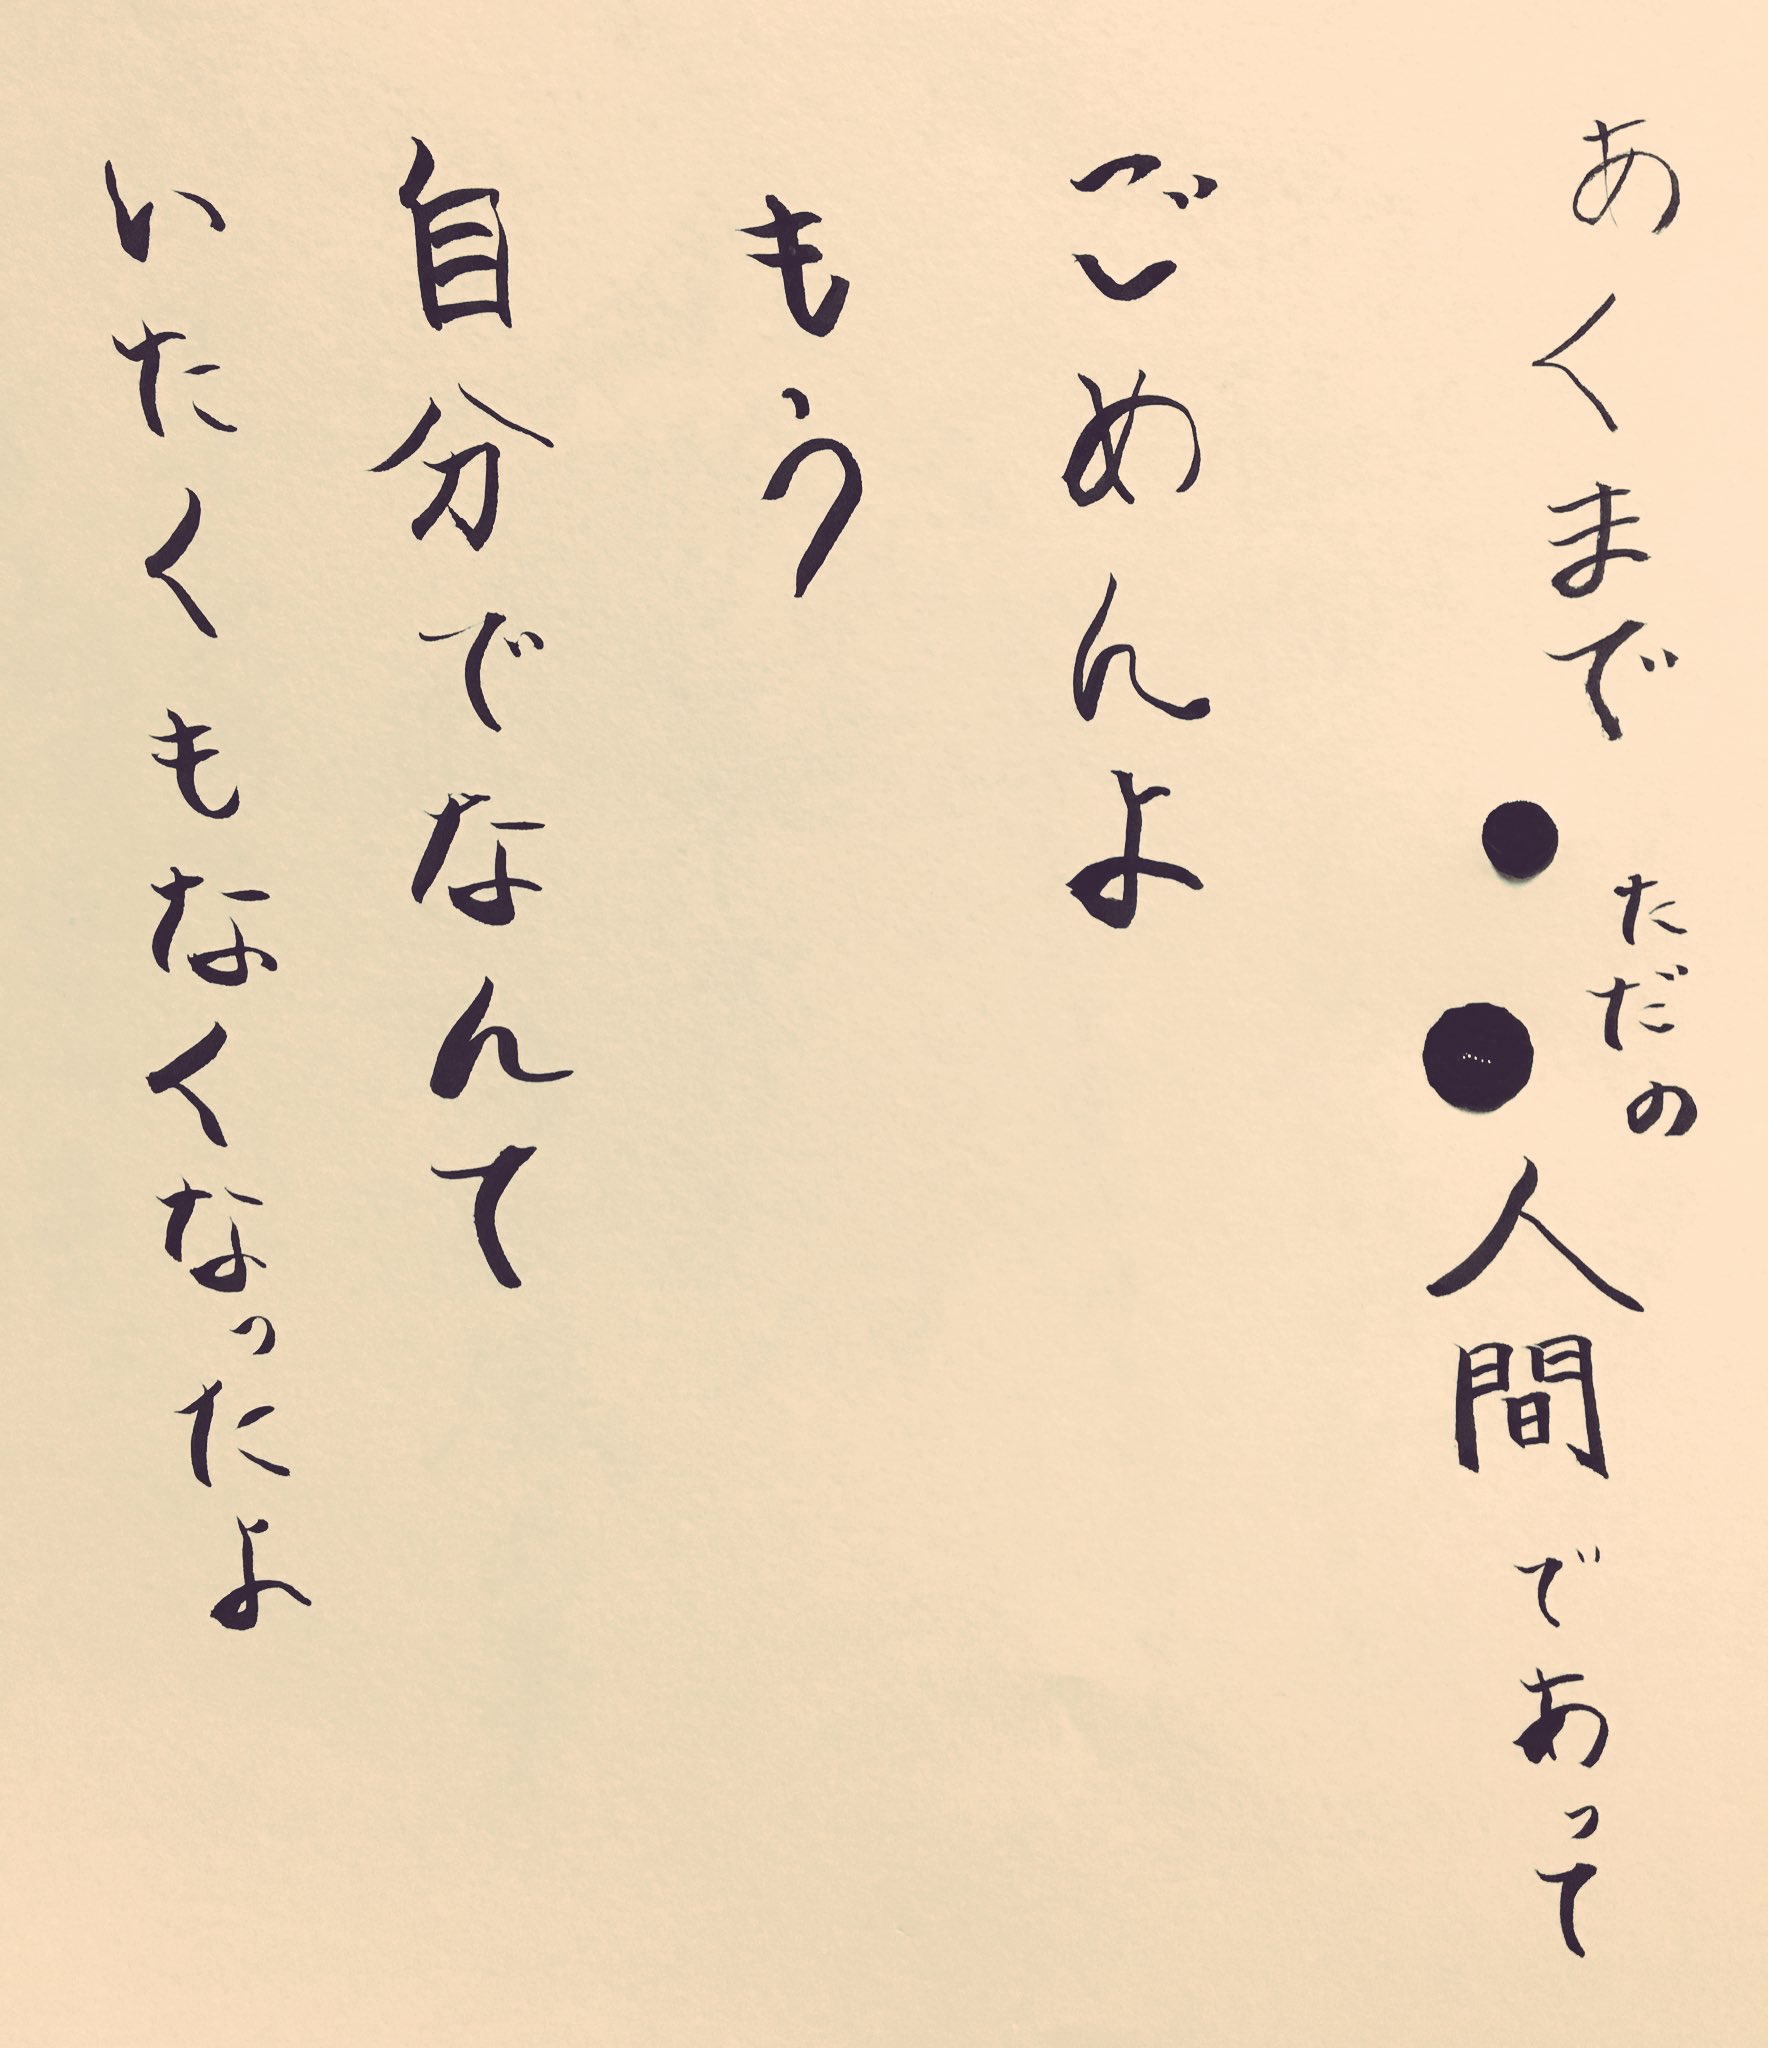 あくまで●●ただの人間であって
ごめんよ
もう
自分でなんて
いたくもなくなったよ